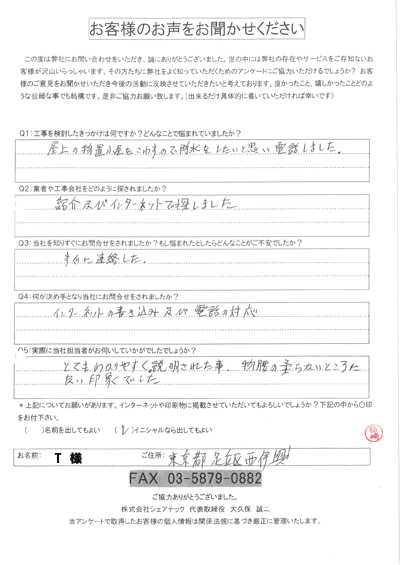 お客様のお声をお聞かせください
この度は弊社にお問い合わせをいただき、誠にありがとうございました。世の中には弊社の存在やサービスをご存知ないお
客様が沢山いらっしゃいます。その方たちに弊社をよく知っていただくためのアンケートにご協力いただけるでしょうか？ お客
様のご意見をお聞かせいただき今後の活動に反映させていただきたいと考えております。良かったこと、嬉しかったことどのよ
うな些細な事でも結構です。是非ご協力お願い致します。（出来るだけ具体的に書いていただければ幸いです）
Q1：工事を検討したきっかけは何ですか？どんなことで悩まれていましたか？
屋上の物置小屋をこわすので防水をしたいと思い電話しました。
Q2：業者や工事会社をどのように探されましたか？
紹介及びインターネットで探しました
Q3：当社を知りすぐにお問合せをされましたか？もし悩まれたとしたらどんなことがご不安でしたか？
すぐに連絡した。
Q4：何が決め手となり当社にお問合せをされましたか？
インターネットの書き込み及び電話の対応
Q5：実際に当社担当者がお伺いしていかがでしたでしょうか？
とてもわかりやすく説明された事、物腰の柔らないところた
良い印象でした
＊上記についてお願いがあります。インターネットや印刷物に掲載させていただいてもよろしいでしょうか？下記の中から〇印
をお付け下さい。
（　　）名前を出してもよい　（レ）イニシャルなら出してもよい
お名前： T 様 ご住所： 東京都足立区西伊興
FAX 03-5879-0882
ご協力ありがとうございました。
株式会社シェアテック 代表取締役 大久保 誠二
当アンケートで取得したお客様の個人情報は関係法規に基づき厳正に管理いたします。